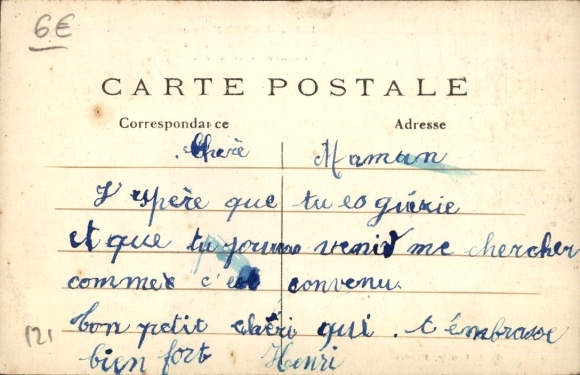 6€
CARTE POSTALE
Correspondance Adresse
Chère Maman
J'espère que tu es guérie
et que tu pourras venir me chercher
commes c'est convenu.
ton petit chéri qui . t'émbrasse
bien fort Henri
121